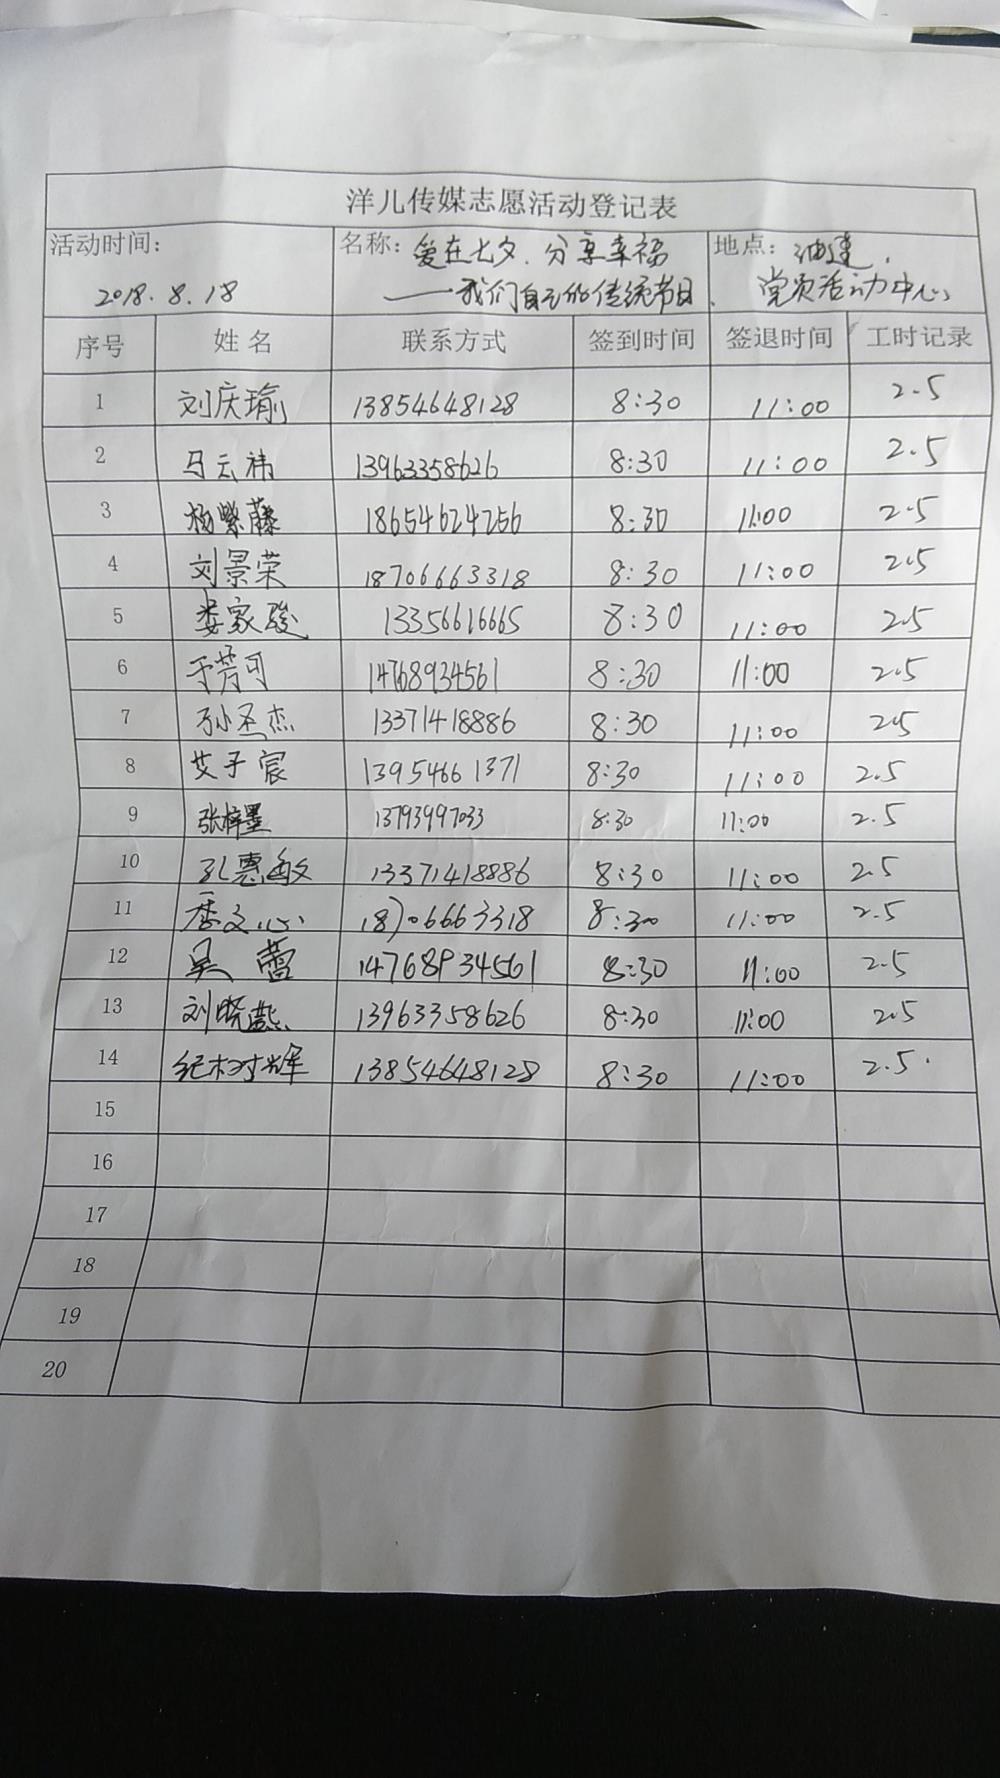 洋儿传媒志愿活动登记表
活动时间： 名称：爱在七夕．分享幸福 地点：油建．
2018.8.18 ——我们自己的传统节日． 党员活动中心
序号 姓名 联系方式 签到时间 签退时间 工时记录
1 刘庆瑜 13854648128 8:30 11:00 2.5
2 马云祎 13963358626 8:30 11:00 2.5
3 杨紫藤 18654624256 8:30 11:00 2.5
4 刘景荣 18706663318 8:30 11:00 2.5
5 娄家骏 13356616665 8:30 11:00 2.5
6 于芳可 14768934561 8:30 11:00 2.5
7 孙丕杰 13371418886 8:30 11:00 2.5
8 艾子宸 13954661371 8:30 11:00 2.5
9 张梓墨 13793997033 8:30 11:00 2.5
10 孔惠敏 13371418886 8:30 11:00 2.5
11 季文心 18706663318 8:30 11:00 2.5
12 吴蕾 14768934561 8:30 11:00 2.5
13 刘晓燕 13963358626 8:30 11:00 2.5
14 纪树辉 13854648128 8:30 11:00 2.5
15
16
17
18
19
20